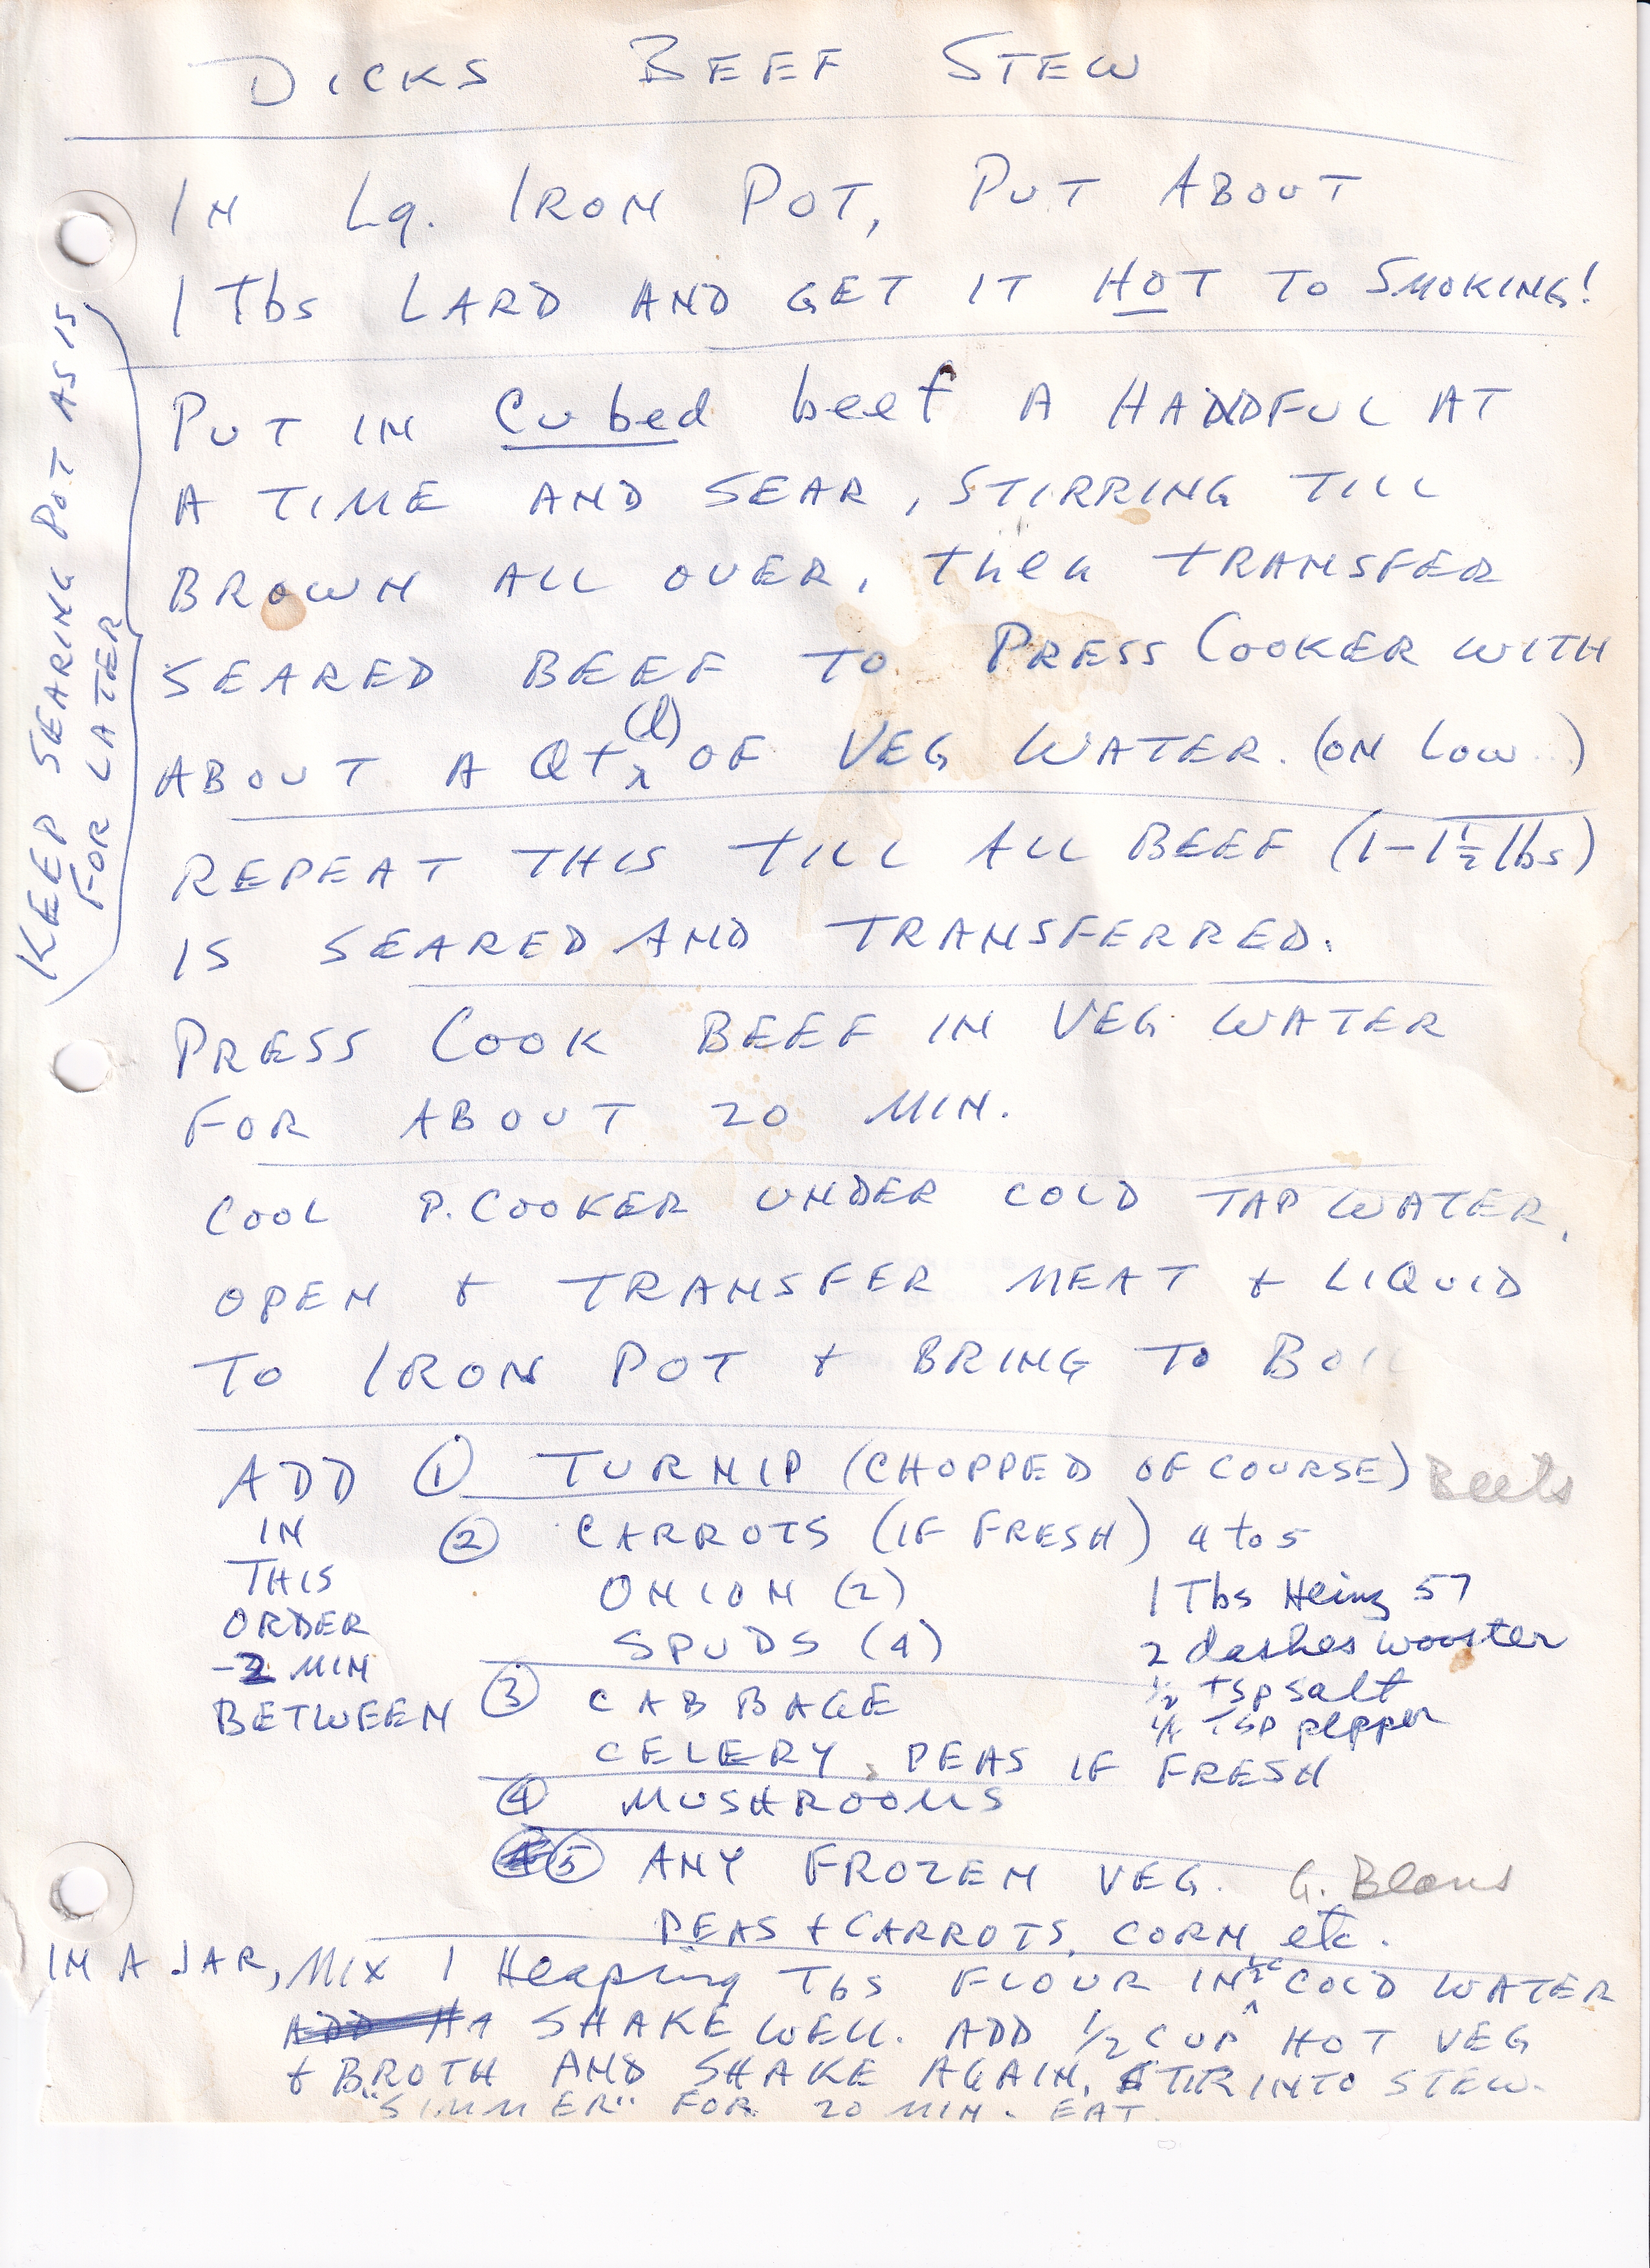 DICKS BEEF STEW
IN Lg. IRON POT, PUT ABOUT
1 Tbs LARD AND GET IT HOT TO SMOKING!
KEEP SEARING POT AS IS
FOR LATER
PUT IN Cubed beef A HANDFUL AT
A TIME AND SEAR, STIRRING TILL
BROWN ALL OVER, then TRANSFER
SEARED BEEF TO PRESS COOKER WITH
ABOUT A Qt (l) OF VEG WATER. (ON LOW..)
REPEAT THIS TILL ALL BEEF (1-1½ lbs)
IS SEARED AND TRANSFERRED.
PRESS COOK BEEF IN VEG WATER
FOR ABOUT 20 MIN.
COOL P. COOKER UNDER COLD TAP WATER,
OPEN + TRANSFER MEAT + LIQUID
TO IRON POT + BRING TO BOIL
ADD ① TURNIP (CHOPPED OF COURSE) Beets
IN ② CARROTS (IF FRESH) 4 to 5
THIS ONION (2) 1 Tbs Heinz 57
ORDER SPUDS (4) 2 dashes wooster
-2 MIN ½ tsp salt
BETWEEN ③ CABBAGE ¼ TSP pepper
CELERY, PEAS IF FRESH
④ MUSHROOMS
⑤ ANY FROZEN VEG. G. Beans
PEAS + CARROTS, CORN, etc.
IN A JAR, MIX 1 Heaping Tbs FLOUR IN ½ c COLD WATER
SHAKE WELL. ADD ½ CUP HOT VEG
+ BROTH AND SHAKE AGAIN, STIR INTO STEW.
"SIMMER" FOR 20 MIN. EAT